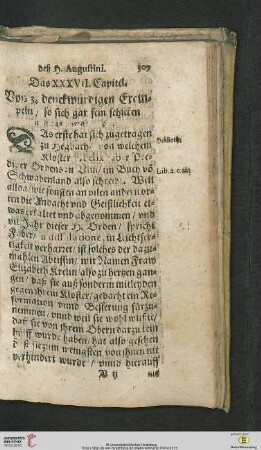 deß H. Augustini. 307
Das XXXVI. Capitel.
Von 3. denckwürdigen Exem-
peln / so sich gar fein schicken
DAs erste hat sich zugetragen
zu Hegbach von welchem
Kloster Felix Pre-
diger Ordens in Ulm / im Buch võ
Schwabenland also schreib. Weil
allda / wie sonsten an vilen andern or-
ten die Andacht und Geistlichkeit et-
was erkaltet und abgenommen / und
vil Jahr dieser H. Orden / spricht
Faber / in
tigkeit verharret / ist solches der dazu-
mahlen Abtissin / mit Namen Fraw
Elizabeth Krelin / also zu hertzen gan-
gen / daß sie auß sonderm mitleyden
gegen ihrem Kloster / gedacht ein Re-
formation vnnd Besserung fürzu-
nemmen / vnnd weil sie wohl wuste /
daß sie von ihrem Obern darzu kein
hülff wurde haben / hat also gesehen
daß sie zum wenigsten von ihnen nit
verhindert wurde / vnnd hierauff